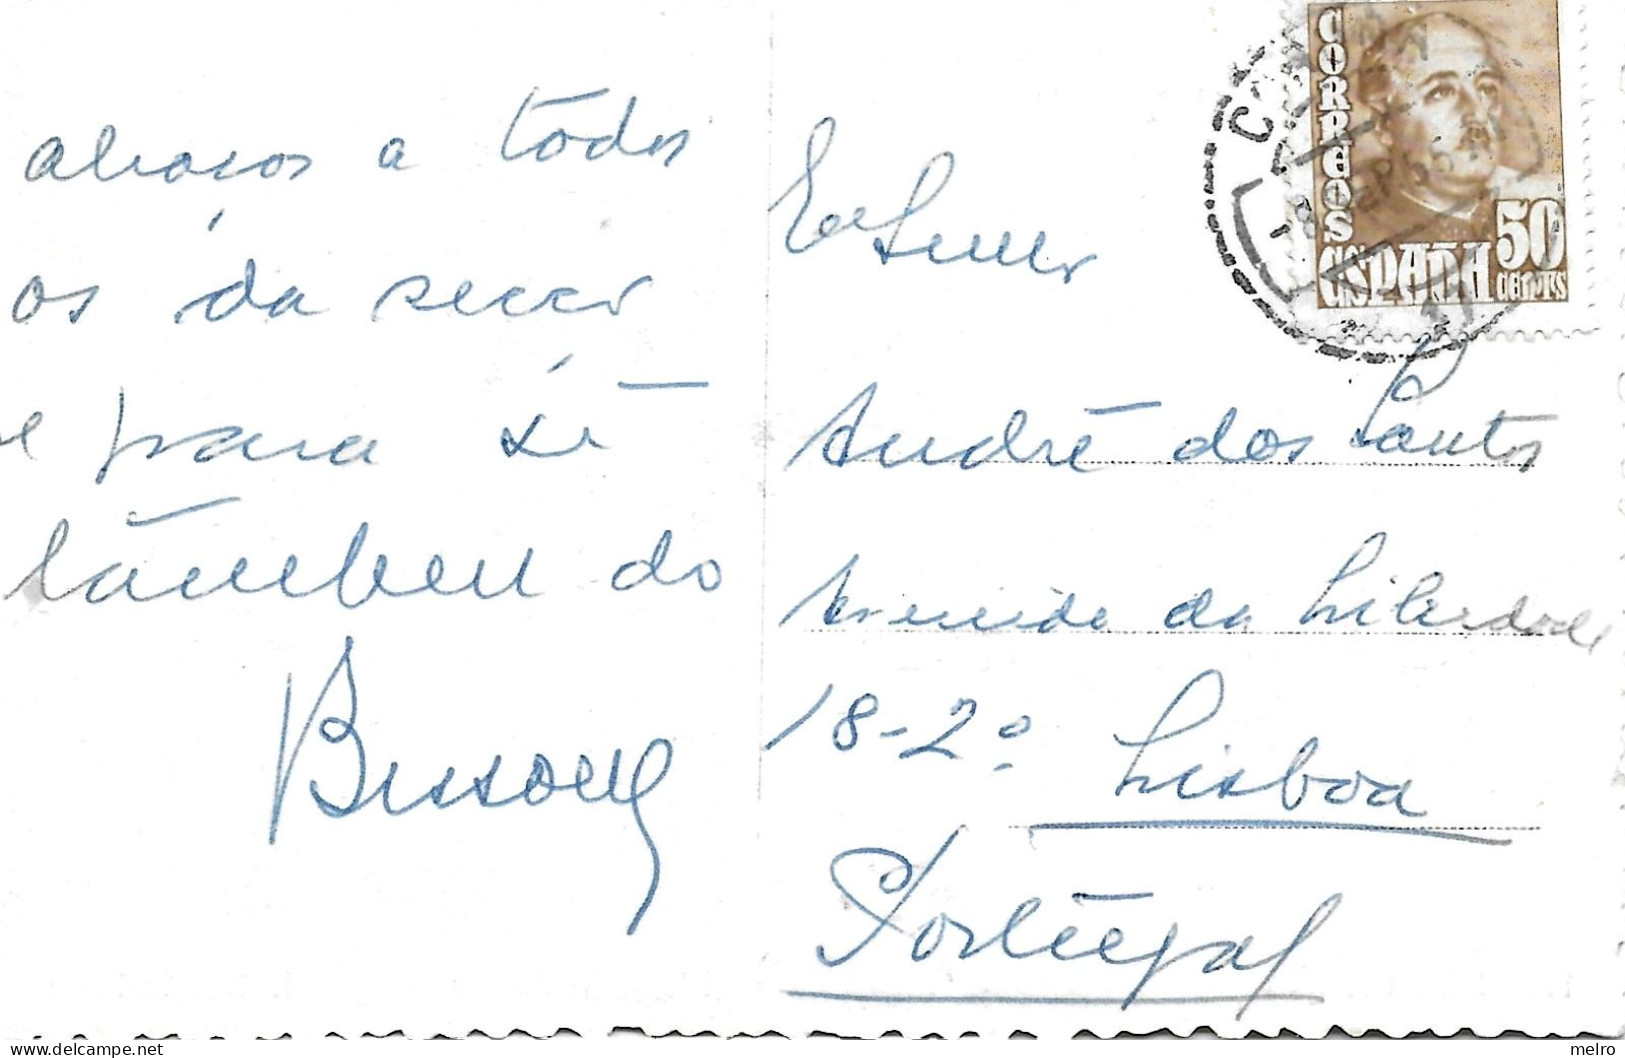 abraços a todos
os da secção
e para si
também do
Exmº Senhor
André dos Santos
Avenida da Liberdade
18-2º Lisboa
Portugal
CORREOS
ESPAÑA
50
CENTS
melro